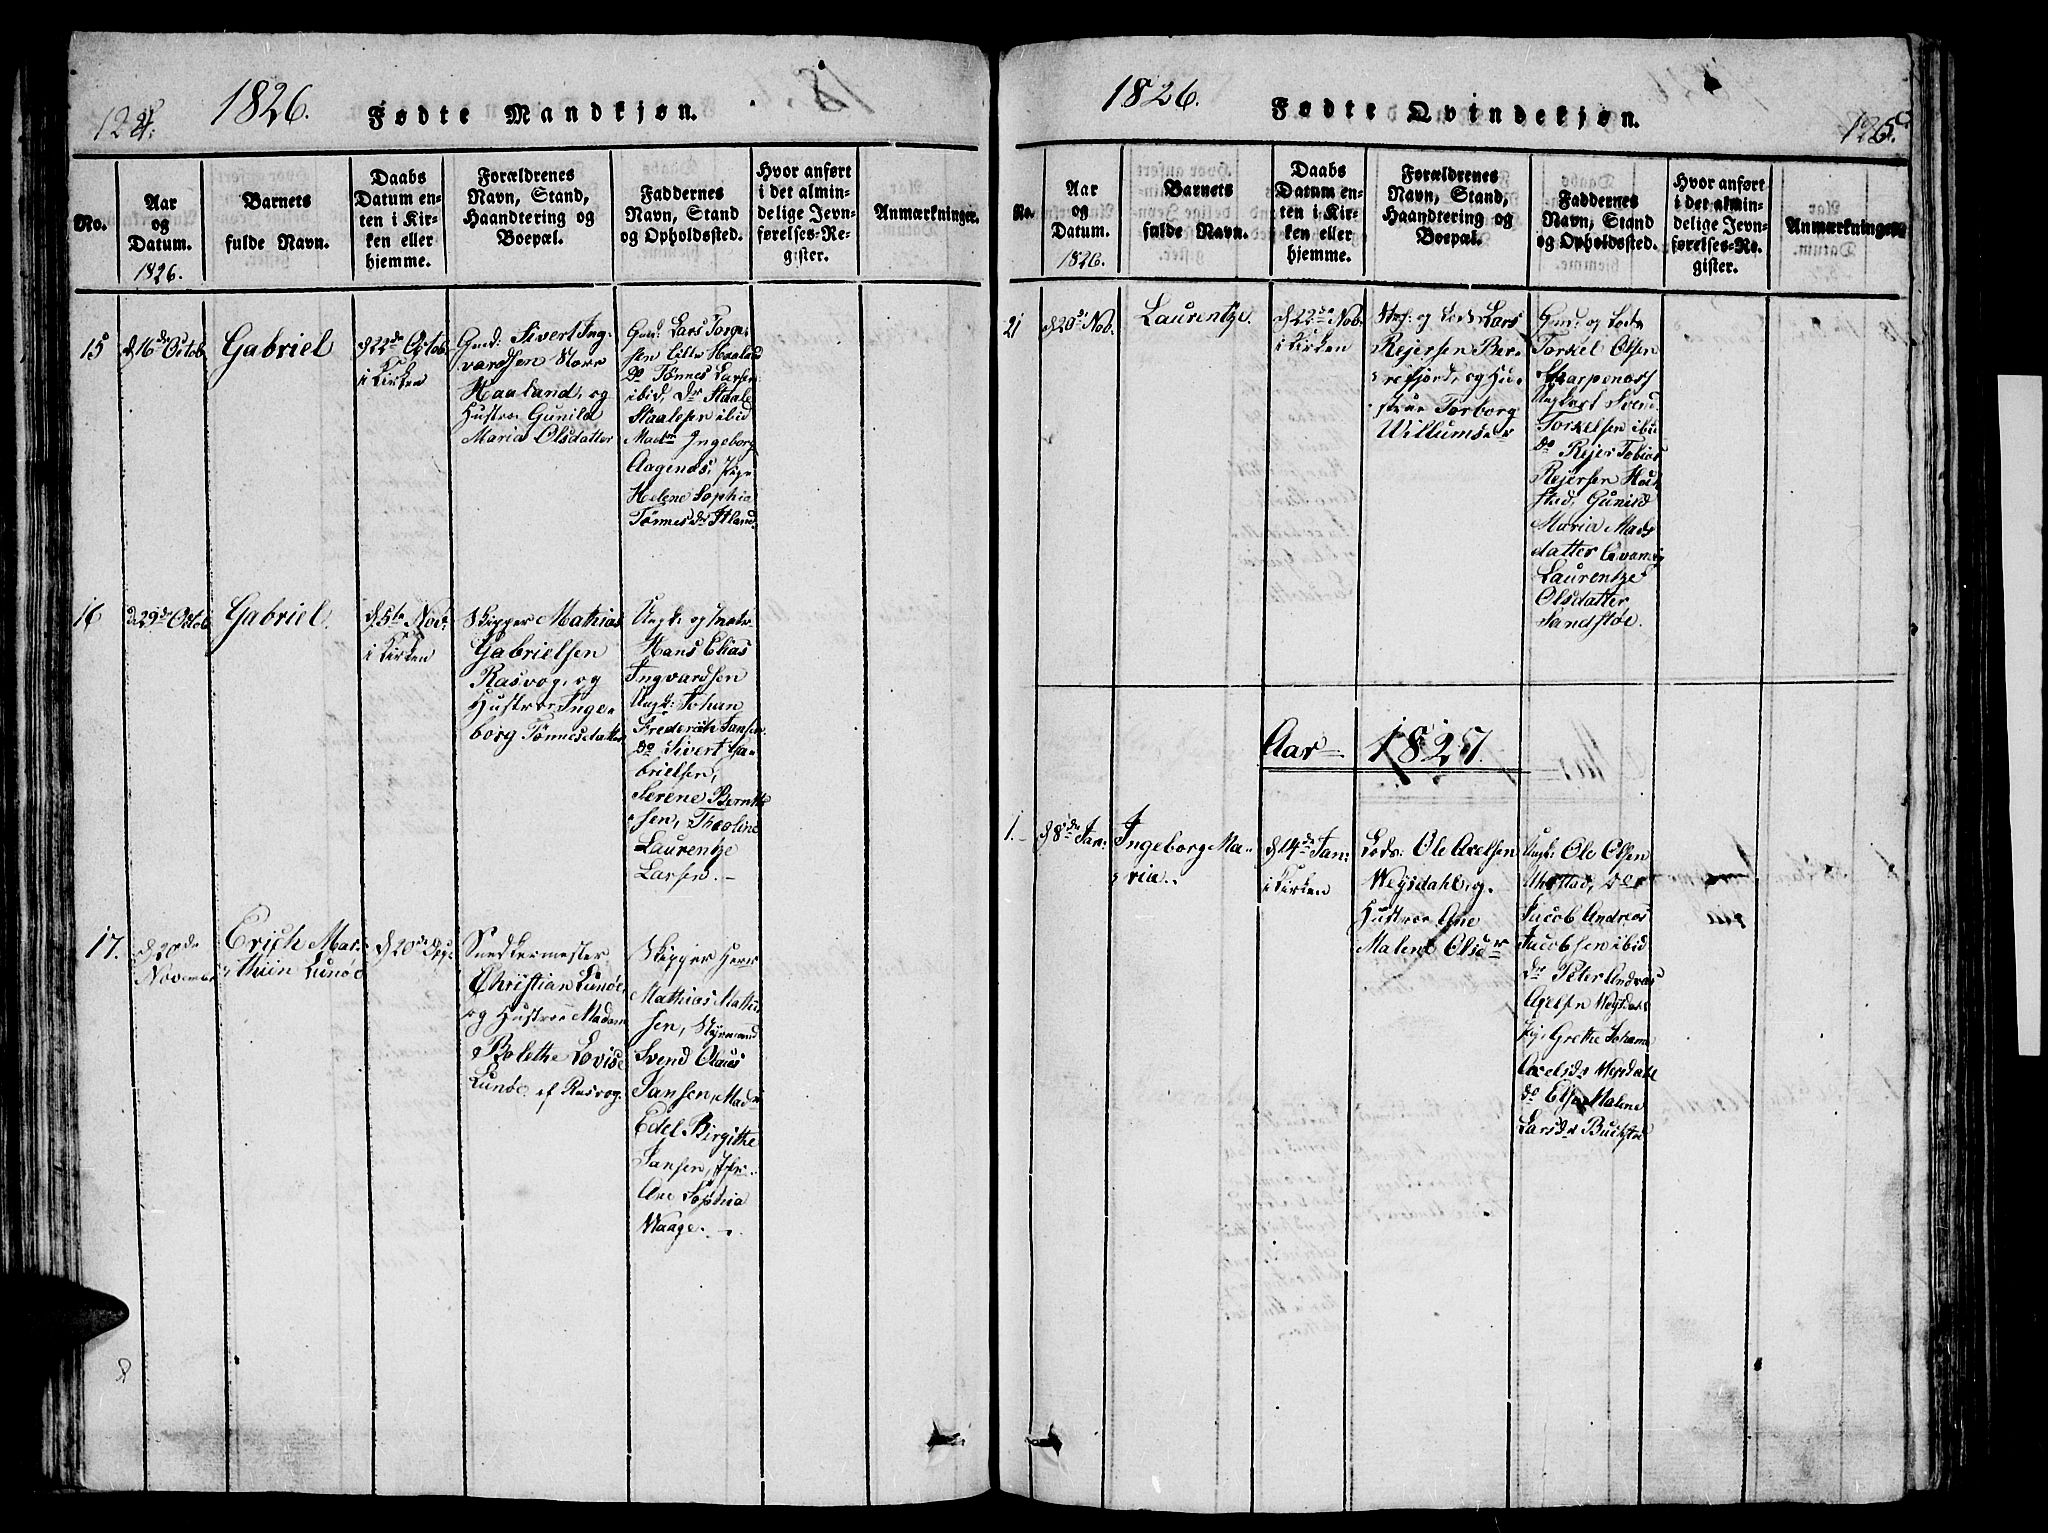 124.
1826.
Fødte Mandkjøn.
No.
Aar
og
Datum.
1826.
Barnets
fulde Navn.
Daabs
Datum en-
ten i Kir-
ken eller
hjemme.
Forældrenes
Navn, Stand,
Haandtering og
Boepæl.
Faddernes
Navn, Stand
og Opholdssted.
Hvor anført
i det almin-
delige Jevn-
førelses-Re-
gister.
Anmærkninger.
15
d 16de Octob
Gabriel
d 22de Octob
i Kirken
Gmd. Sivert Ing-
vardsen Store
Haaland, og
Hustroe Gunild
Maria Olsdatter
Gmd: Lars Torge-
sen Lille Haaland
Do Tönnes Larsen
ibid, Do Staale
Staalesen ibid
Mad Ingeborg
Aagenæs, Pige
Helene Sophia
Tönnesdr
16
d 29de Octob
Gabriel.
d 5te Nov:
i Kirken
Skipper Mathias
Gabrielsen
Rasvog, og
Hustroe Inge-
borg Tönnesdatter
Ungk: og
Hans Elias
Ingvardsen
Ungk: Johan
Frederich Jansen
do Sivert Ga-
brielsen,
Serene Bernt-
sen, Theoline
Laurentze
Larsen. –
17.
d 20de
November
Erich Mar-
thin Lunöe
d 20de
Snedkermester
Christian Lunöe,
og Hustroe Madam
Bolethe Lovise
Lunöe af Rasvog.
Skipper Herr
Mathias Mathi-
sen, Styrmand
Svend Olaus
Jansen, Mad
Edel Birgithe
Jansen, Jfr:
Ane Sophia
Waage. –
1826.
Fødte Qvindekjøn.
125.
No.
Aar
og
Datum.
1826.
Barnets
fulde Navn.
Daabs
Datum en-
ten i Kir-
ken eller
hjemme.
Forældrenes
Navn, Stand,
Haandtering og
Boepæl.
Faddernes
Navn, Stand
og Opholdssted.
Hvor anført
i det almin-
delige Jevn-
førelses-Re-
gister.
Anmærkninger.
21
d 20de Nob.
Laurentze.
d 22de Nob
i Kirken
og Lods Lars
Rejersen Ber-
refjord, og Hu-
stroe Torborg
Willumsdr
Gmd: og Lods
Torkel Olsen
Skarpenæs
Ungkarl Svend
Torkelsen ibid
do Rejer Tobias
Rejersen
Gunild
Maria Mads
datter
Laurentze
Olsdatter
Sandstøe.
Aar 1827.
1.
d 8de Jan:
Ingeborg Ma-
ria.
d 14de Jan:
i Kirken
Lods: Ole Axelsen
Weysdahl, og
Hustroe Ane
Malene Olsdr
Ungk: Ole Olsen
Do
Jacob Andreas
Jacobsen ibid
do Peter Andreas
Axelsen Weysdahl
Pig: Grethe Johanne
Axelsdr Weysdahl
do Else Malene
Larsdr